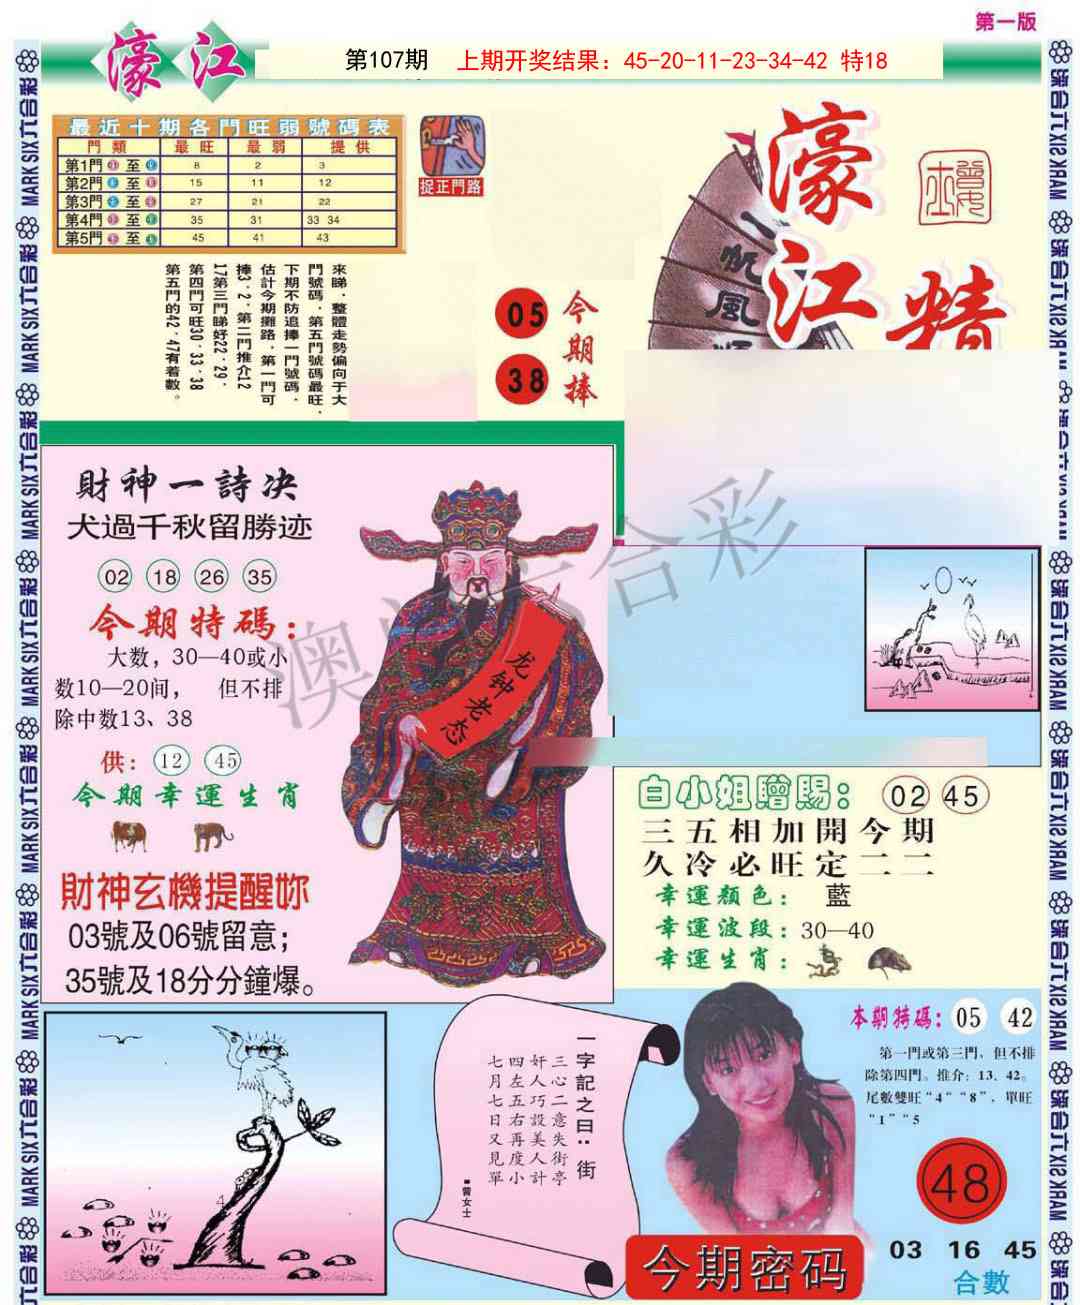 第一版
濠江
第107期 上期开奖结果：45-20-11-23-34-42 特18
最近十期各門旺弱號碼表
門類 最旺 最弱 提供
第1門 至 8 2 3
第2門 至 15 11 12
第3門 至 27 21 22
第4門 至 35 31 33 34
第5門 至 45 41 43
捉正門路
來睇．整體走勢偏向于大
門號碼．第五門號碼最旺．
下期不防追捧一門號碼．
估計今期攤路．第一門可
捧3．2．第二門推介12
17第三門睇好22．29．
第四門可旺30．33．38
第五門的42．47有着數。
05
38
今期捧
濠江精
一帆風順
財神一詩决
犬過千秋留勝迹
02 18 26 35
今期特碼：
大数，30—40或小
数10—20间， 但不排
除中数13、38
供：12 45
今期幸運生肖
財神玄機提醒妳
03號及06號留意；
35號及18分分鐘爆。
龙钟老态
白小姐贈賜：02 45
三五相加開今期
久冷必旺定二二
幸運顏色： 藍
幸運波段：30—40
幸運生肖：
一字記之曰：街
三心二意失街亭
奸人巧設美人計
四左五右再度小
七月七日又見單
■曾女士
本期特碼：05 42
第一門或第三門，但不排
除第四門。推介：13．42。
尾數雙旺“4”“8”．單旺
“1”“5
48
03 16 45
合數
今期密码